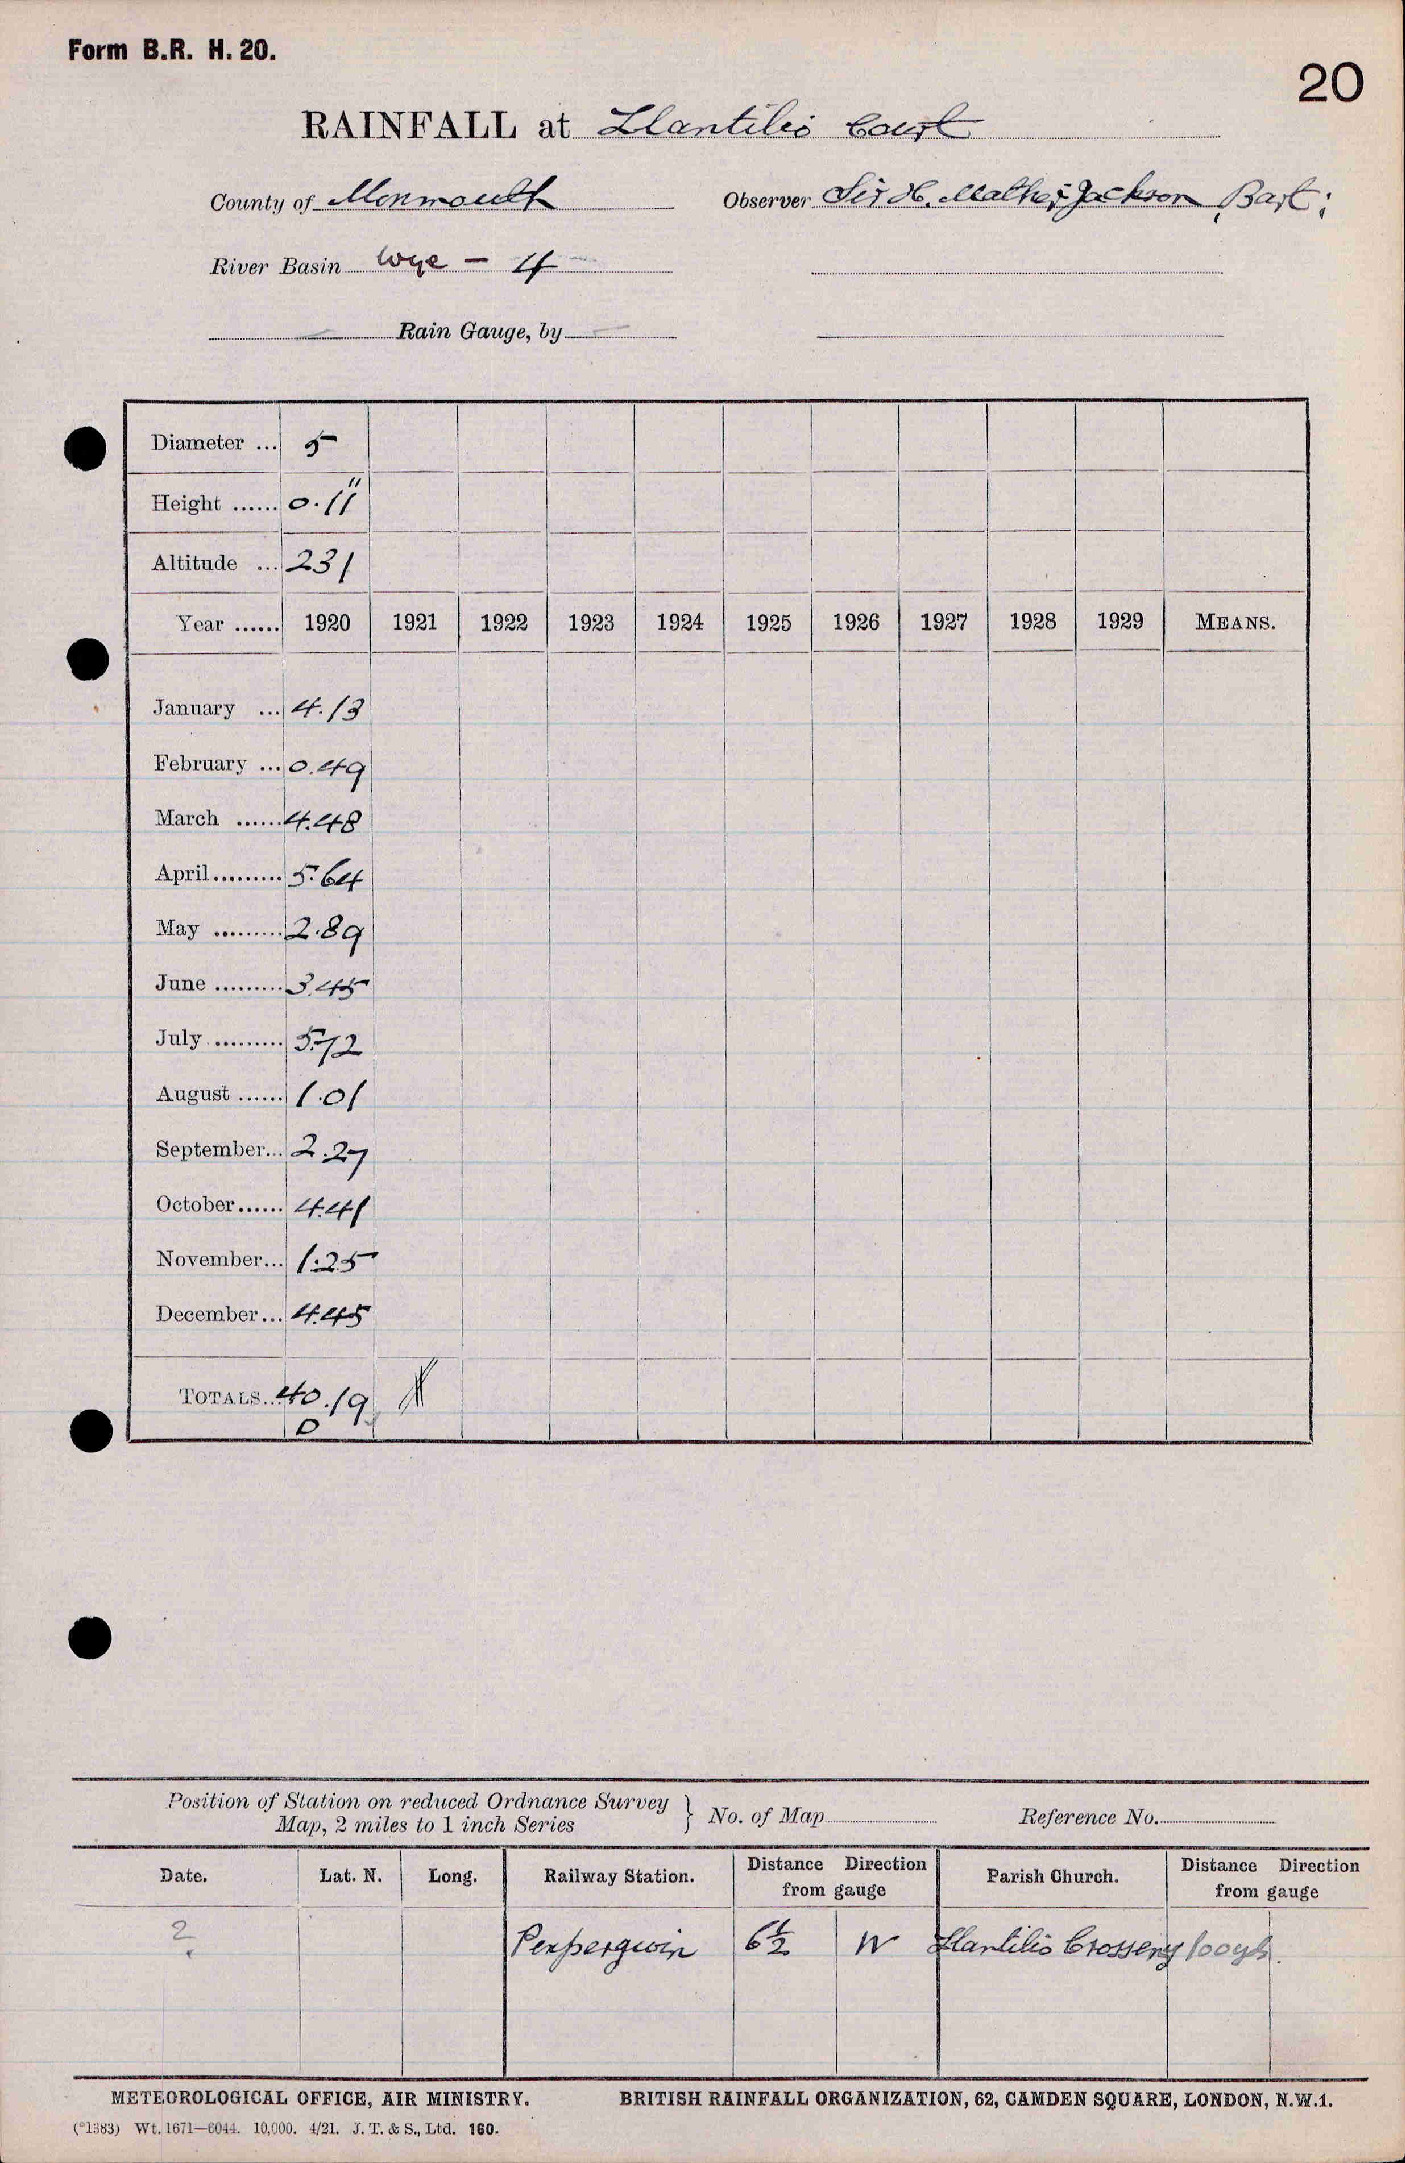 Form B.R. H. 20.
20
RAINFALL at Llantilio Court
County of Monmouth Observer Sir H. Mather Jackson, Bart;
River Basin Wye - 4
Rain Gauge, by
Diameter ... 5
Height ...... 0.11"
Altitude ... 231
Year ...... 1920 1921 1922 1923 1924 1925 1926 1927 1928 1929 MEANS.
January ... 4.13
February ... 0.49
March ...... 4.48
April......... 5.64
May ......... 2.89
June ......... 3.45
July ......... 5.72
August ...... 1.01
September... 2.27
October...... 4.41
November... 1.25
December... 4.45
TOTALS... 40.19
D
Position of Station on reduced Ordnance Survey
Map, 2 miles to 1 inch Series } No. of Map Reference No.
Date. Lat. N. Long. Railway Station. Distance Direction from gauge Parish Church. Distance Direction from gauge
? Penpergwin 6½ W Llantilio Crosseny 100yds.
METEOROLOGICAL OFFICE, AIR MINISTRY. BRITISH RAINFALL ORGANIZATION, 62, CAMDEN SQUARE, LONDON, N.W.1.
(*1383) Wt. 1671—6044. 10,000. 4/21. J. T. & S., Ltd. 160.